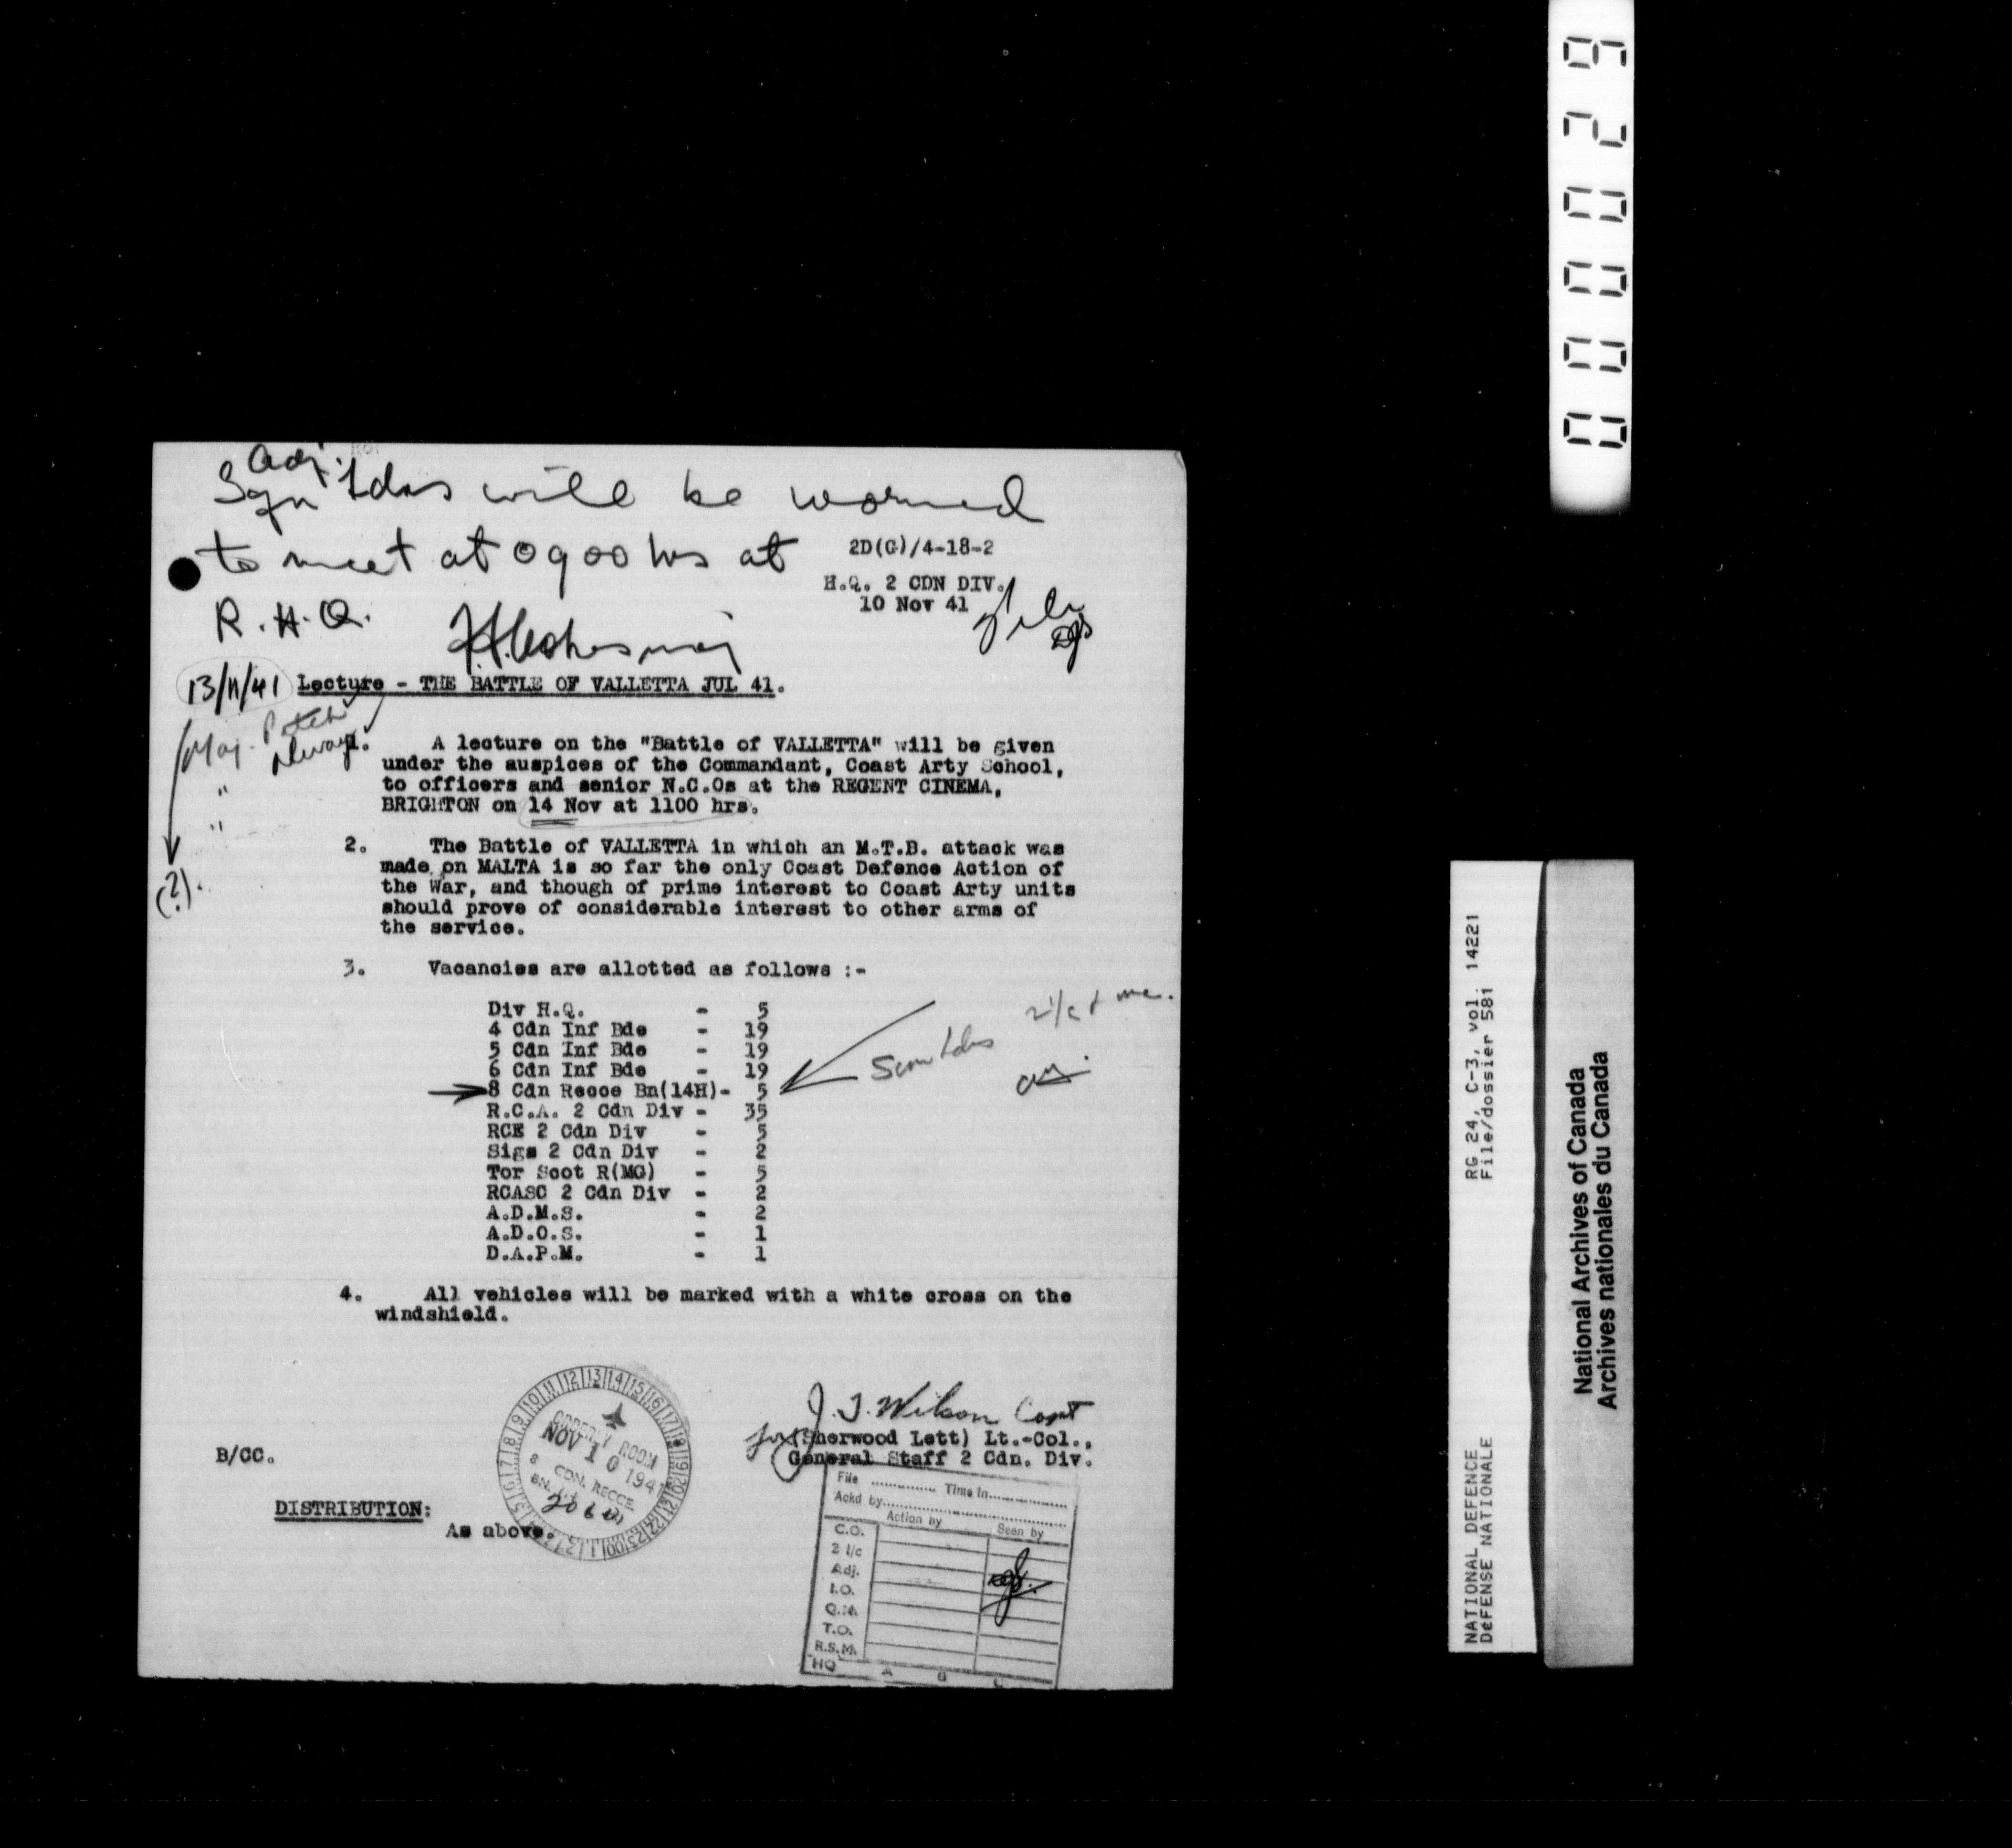 Adj.
Sqn ldrs will be warned
to meet at 0900 hrs at
R.H.Q.
2D(G)/4-18-2
H.Q. 2 CDN DIV.
10 Nov 41
file
13/11/41 Lecture - THE BATTLE OF VALLETTA JUL 41.
Maj.
"
"
(?).
1. A lecture on the "Battle of VALLETTA" will be given
under the auspices of the Commandant, Coast Arty School,
to officers and senior N.C.Os at the REGENT CINEMA,
BRIGHTON on 14 Nov at 1100 hrs.
2. The Battle of VALLETTA in which an M.T.B. attack was
made on MALTA is so far the only Coast Defence Action of
the War, and though of prime interest to Coast Arty units
should prove of considerable interest to other arms of
the service.
3. Vacancies are allotted as follows :-
Div H.Q. - 5
4 Cdn Inf Bde - 19
5 Cdn Inf Bde - 19
6 Cdn Inf Bde - 19
8 Cdn Recce Bn(14H)- 5
R.C.A. 2 Cdn Div - 35
RCE 2 Cdn Div - 5
Sigs 2 Cdn Div - 2
Tor Scot R(MG) - 5
RCASC 2 Cdn Div - 2
A.D.M.S. - 2
A.D.O.S. - 1
D.A.P.M. - 1
2 i/c & me.
4. All vehicles will be marked with a white cross on the
windshield.
J. T. Wilson Capt
for (Sherwood Lett) Lt.-Col.,
General Staff 2 Cdn. Div.
B/CC.
DISTRIBUTION:
As above.
ORDERLY ROOM
NOV 10 1941
8 CDN. RECCE.
BN.
File Time In
Ackd by
Action by Seen by
C.O.
2 i/c
Adj.
I.O.
Q.M.
T.O.
R.S.M.
HQ A B C
000029
RG 24, C-3, vol. 14221
File/dossier 581
NATIONAL DEFENCE
DéFENSE NATIONALE
National Archives of Canada
Archives nationales du Canada